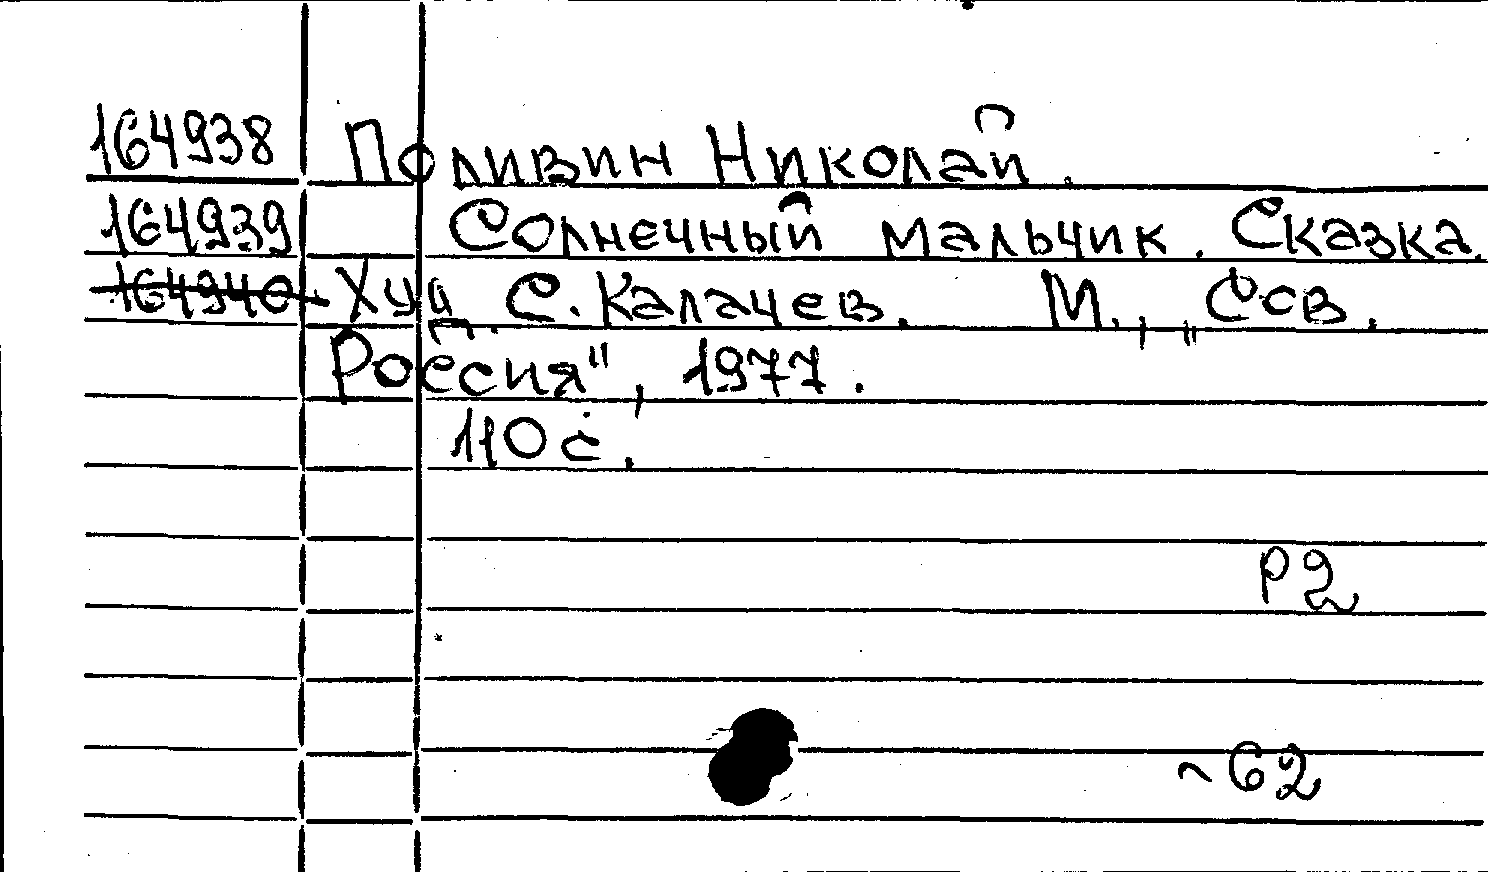 164938 Поливин Николай.
164939 Солнечный мальчик. Сказка.
164940 Худ. С. Калачев. М., „Сов.
Россия", 1977.
110 с.
Р2
~62